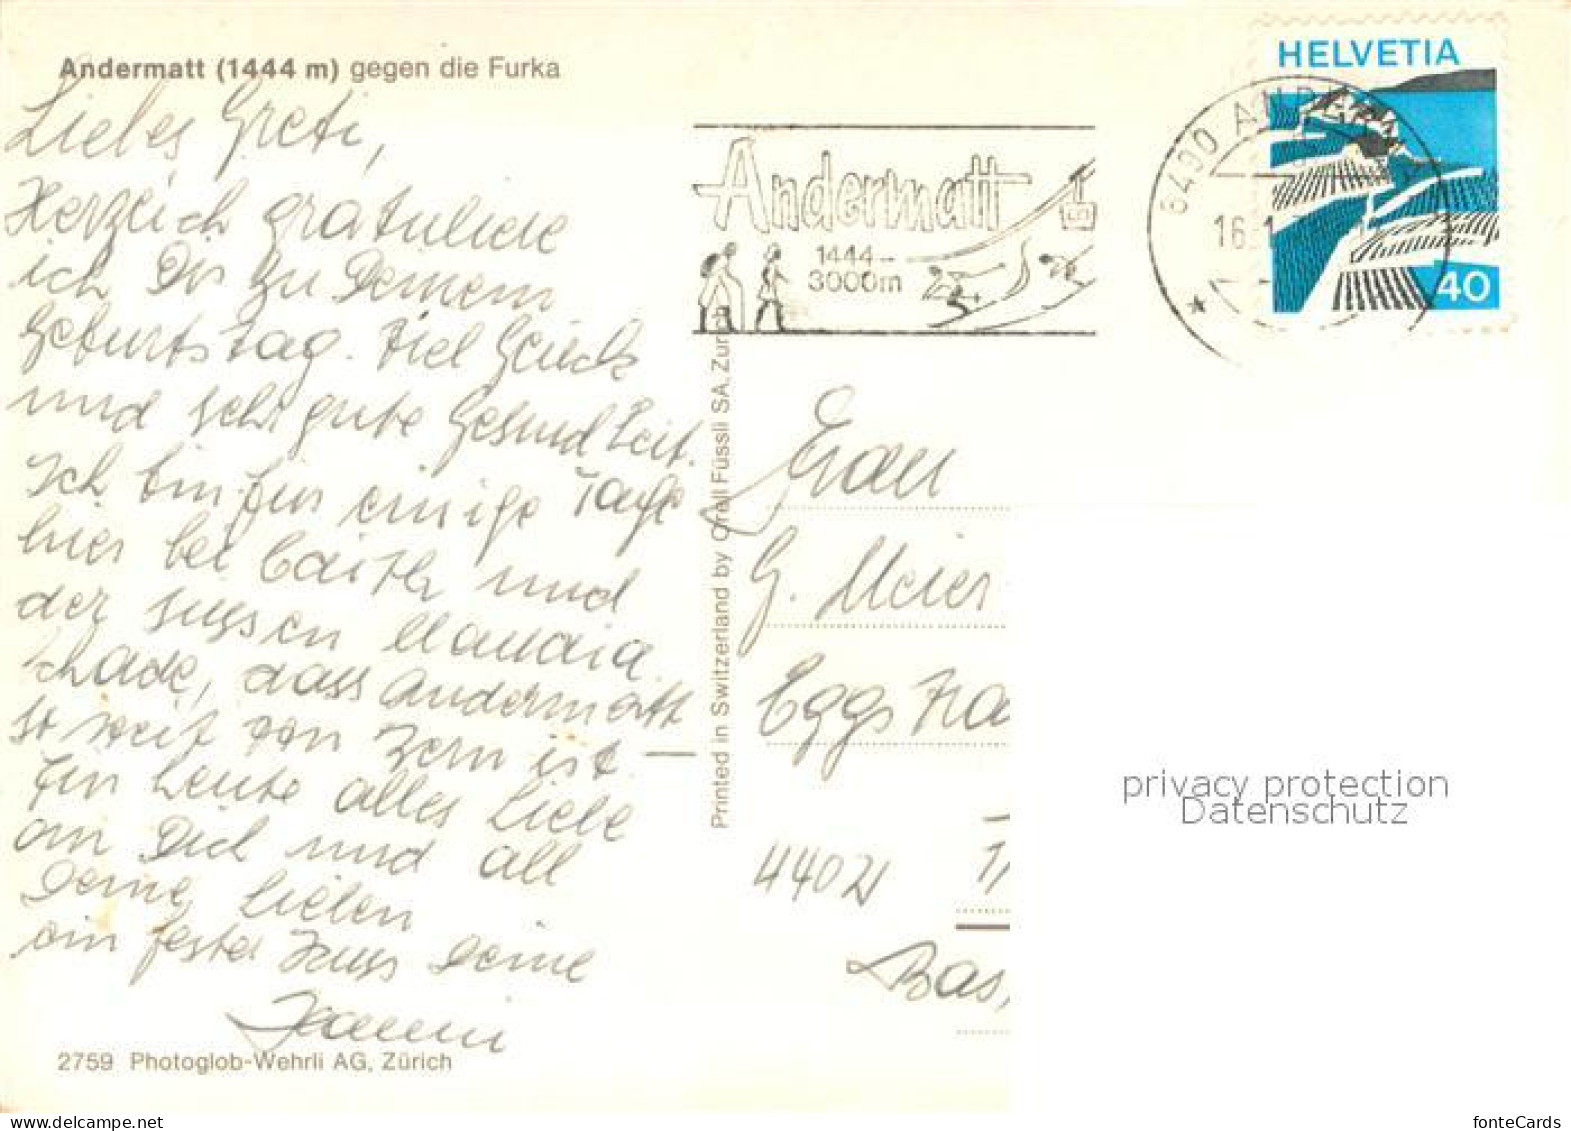 Andermatt (1444 m) gegen die Furka
Liebes Greti,
Herzlich gratuliere
ich Dir zu Deinem
Geburtstag. Viel Glück
und sehr gute Gesundheit.
Ich bin für einige Tage
hier bei und
der süssen Claudia.
Schade, dass Andermatt
so weit von ist.
Für heute alles Liebe
an Dich und all
Deine Lieben
ein fester Kuss Deine
2759 Photoglob-Wehrli AG, Zürich
Printed in Switzerland by Orell Füssli SA, Zur
Andermatt
1444-
3000m
6490 ANDERMATT
16.1
HELVETIA
40
Frau
G. Meier
Eggs
4402
Bas
privacy protection
Datenschutz
fonteCards